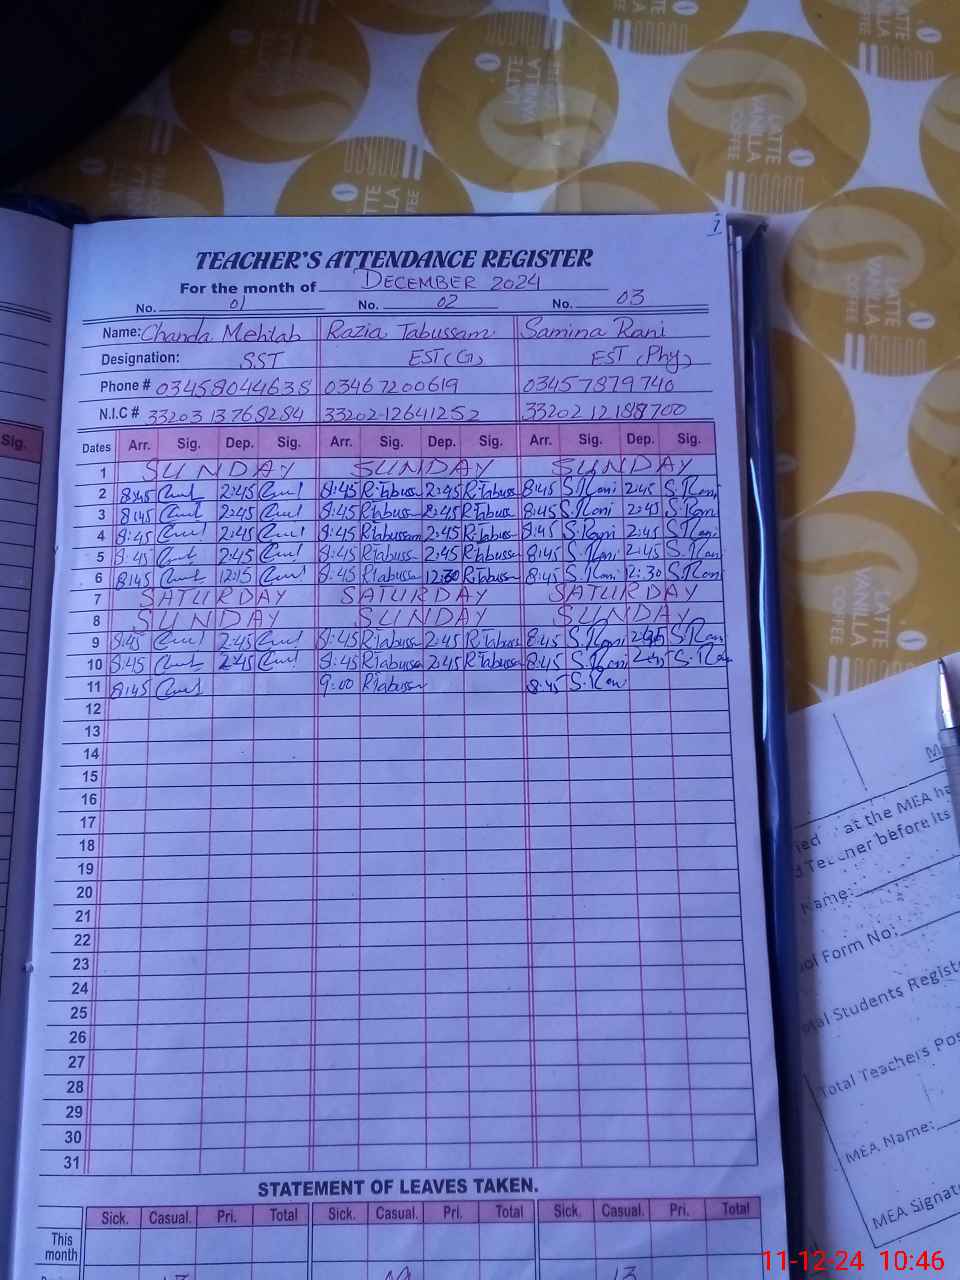 LATTE VANILLA COFFEE
7
TEACHER'S ATTENDANCE REGISTER
For the month of DECEMBER 2024
No. 01 No. 02 No. 03
Name: Chanda Mehtab Razia Tabussam Samina Rani
Designation: SST EST(G) EST (Phy)
Phone # 03458044638 03467200619 03457879740
N.I.C # 33202-12641252
Sig. Dates Arr. Sig. Dep. Sig. Arr. Sig. Dep. Sig. Arr. Sig. Dep. Sig.
1 SUNDAY SUNDAY SUNDAY
2 8:45 2:45 8:45 R.Tabuss 2:45 R.Tabuss 8:45 S.Rani 2:45 S.Rani
3 8:45 2:45 8:45 R.Tabuss 2:45 R.Tabuss 8:45 S.Rani 2:45 S.Rani
4 8:45 2:45 8:45 R.Tabussam 2:45 R.Tabuss 8:45 S.Rani 2:45 S.Rani
5 8:45 2:45 8:45 R.Tabuss 2:45 R.Tabuss 8:45 S.Rani 2:45 S.Rani
6 8:45 12:15 8:45 R.Tabuss 12:30 R.Tabuss 8:45 S.Rani 12:30 S.Rani
7 SATURDAY SATURDAY SATURDAY
8 SUNDAY SUNDAY SUNDAY
9 8:45 2:45 8:45 R.Tabuss 2:45 R.Tabuss 8:45 S.Rani S.Rani
10 8:45 2:45 8:45 R.Tabuss 2:45 R.Tabuss 8:45 S.Rani 2:45 S.Rani
11 8:45 9:00 R.Tabuss 8:45 S.Rani
12
13
14
15
16
17
18
19
20
21
22
23
24
25
26
27
28
29
30
31
STATEMENT OF LEAVES TAKEN.
Sick. Casual. Pri. Total Sick. Casual. Pri. Total Sick. Casual. Pri. Total
This month
13
at the MEA ha
before its
Name:
Form No:
Students Regist
Total Teachers Pos
MEA Name:
MEA Signat
11-12-24 10:46